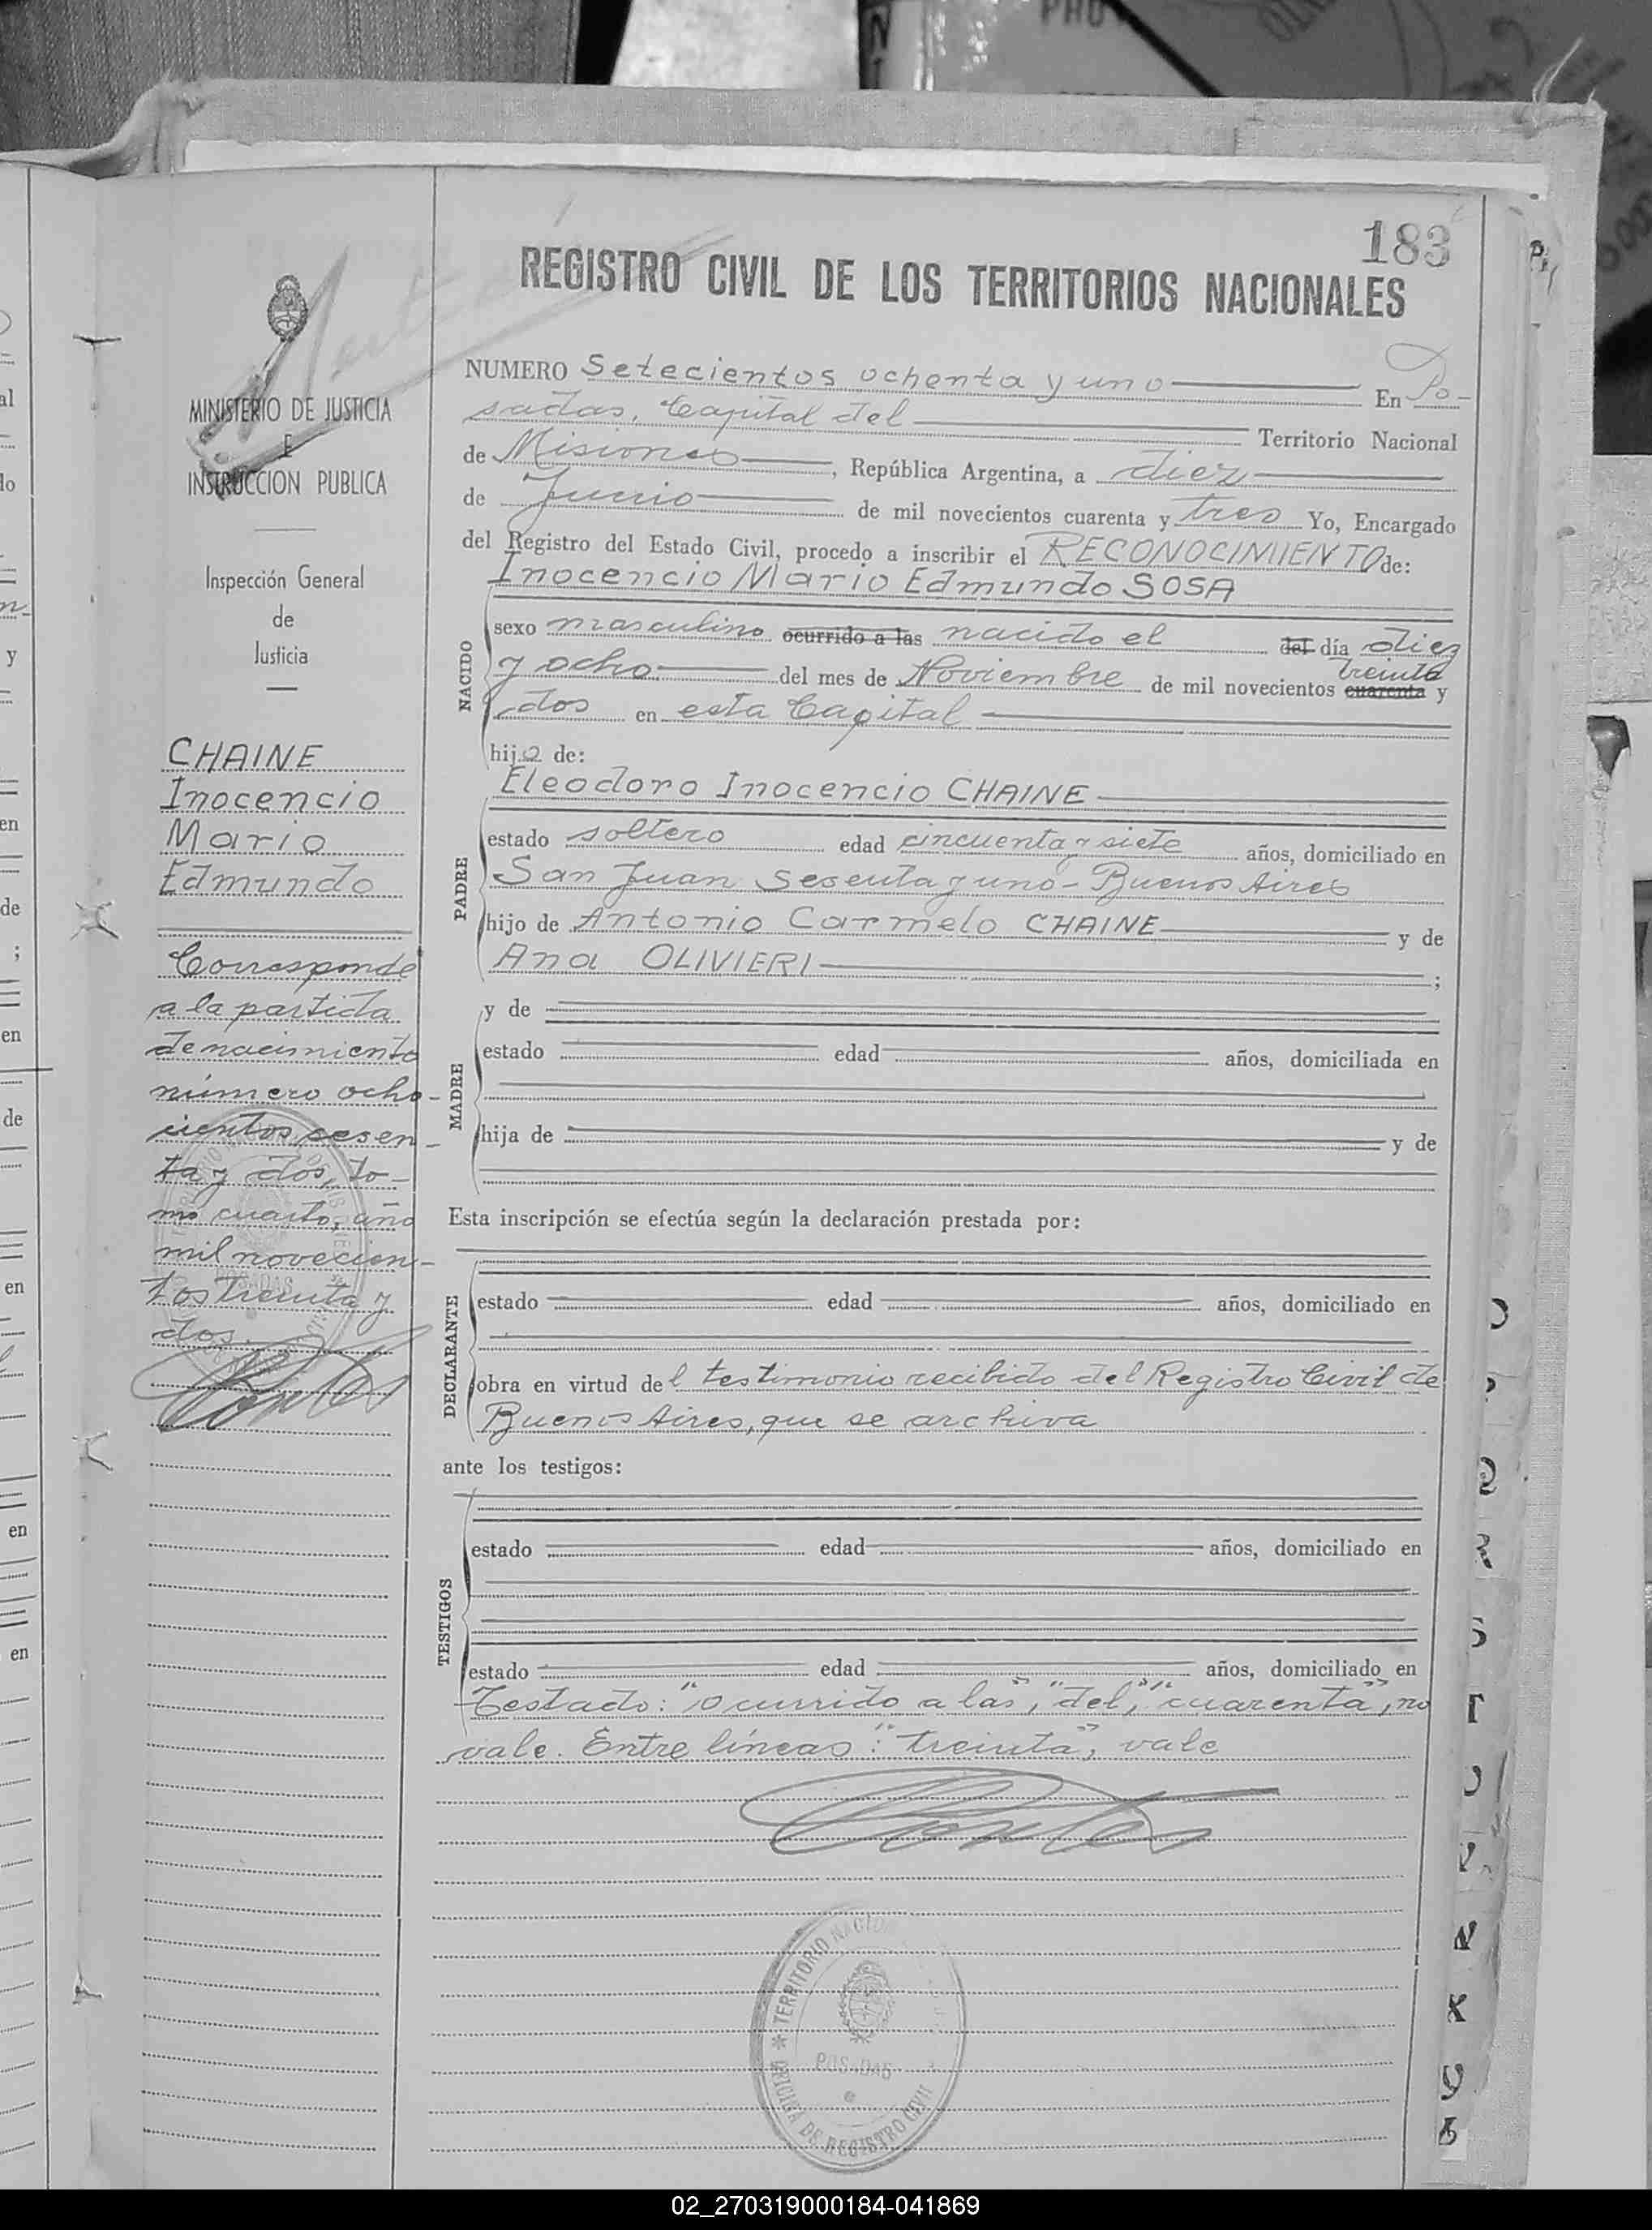 183
REGISTRO CIVIL DE LOS TERRITORIOS NACIONALES
MINISTERIO DE JUSTICIA
E
INSTRUCCION PUBLICA
Inspección General
de
Justicia
CHAINE
Inocencio
Mario
Edmundo
Corresponde
a la partida
de nacimiento
número ocho-
cientos sesen-
ta y dos, to-
mo cuarto, año
mil novecien-
tos treinta y
dos.
NUMERO Setecientos ochenta y uno En Po-
sadas, Capital del Territorio Nacional
de Misiones, República Argentina, a diez
de Junio de mil novecientos cuarenta y tres Yo, Encargado
del Registro del Estado Civil, procedo a inscribir el RECONOCIMIENTO de:
Inocencio Mario Edmundo SOSA
NACIDO
sexo masculino ocurrido a las nacido el del día diez
treinta
y ocho del mes de Noviembre de mil novecientos cuarenta y
dos en esta Capital
hijo de:
Eleodoro Inocencio CHAINE
PADRE
estado soltero edad cincuenta y siete años, domiciliado en
San Juan sesenta y uno - Buenos Aires
hijo de Antonio Carmelo CHAINE y de
Ana OLIVIERI ;
MADRE
y de
estado edad años, domiciliada en
hija de y de
Esta inscripción se efectúa según la declaración prestada por:
DECLARANTE
estado edad años, domiciliado en
obra en virtud del testimonio recibido del Registro Civil de
Buenos Aires, que se archiva
ante los testigos:
TESTIGOS
estado edad años, domiciliado en
estado edad años, domiciliado en
Testado: "ocurrido a las", "del", "cuarenta", no
vale. Entre líneas: "treinta", vale
TERRITORIO NACIO
POSADAS
OFICINA DE REGISTRO CIVIL
02_270319000184-041869